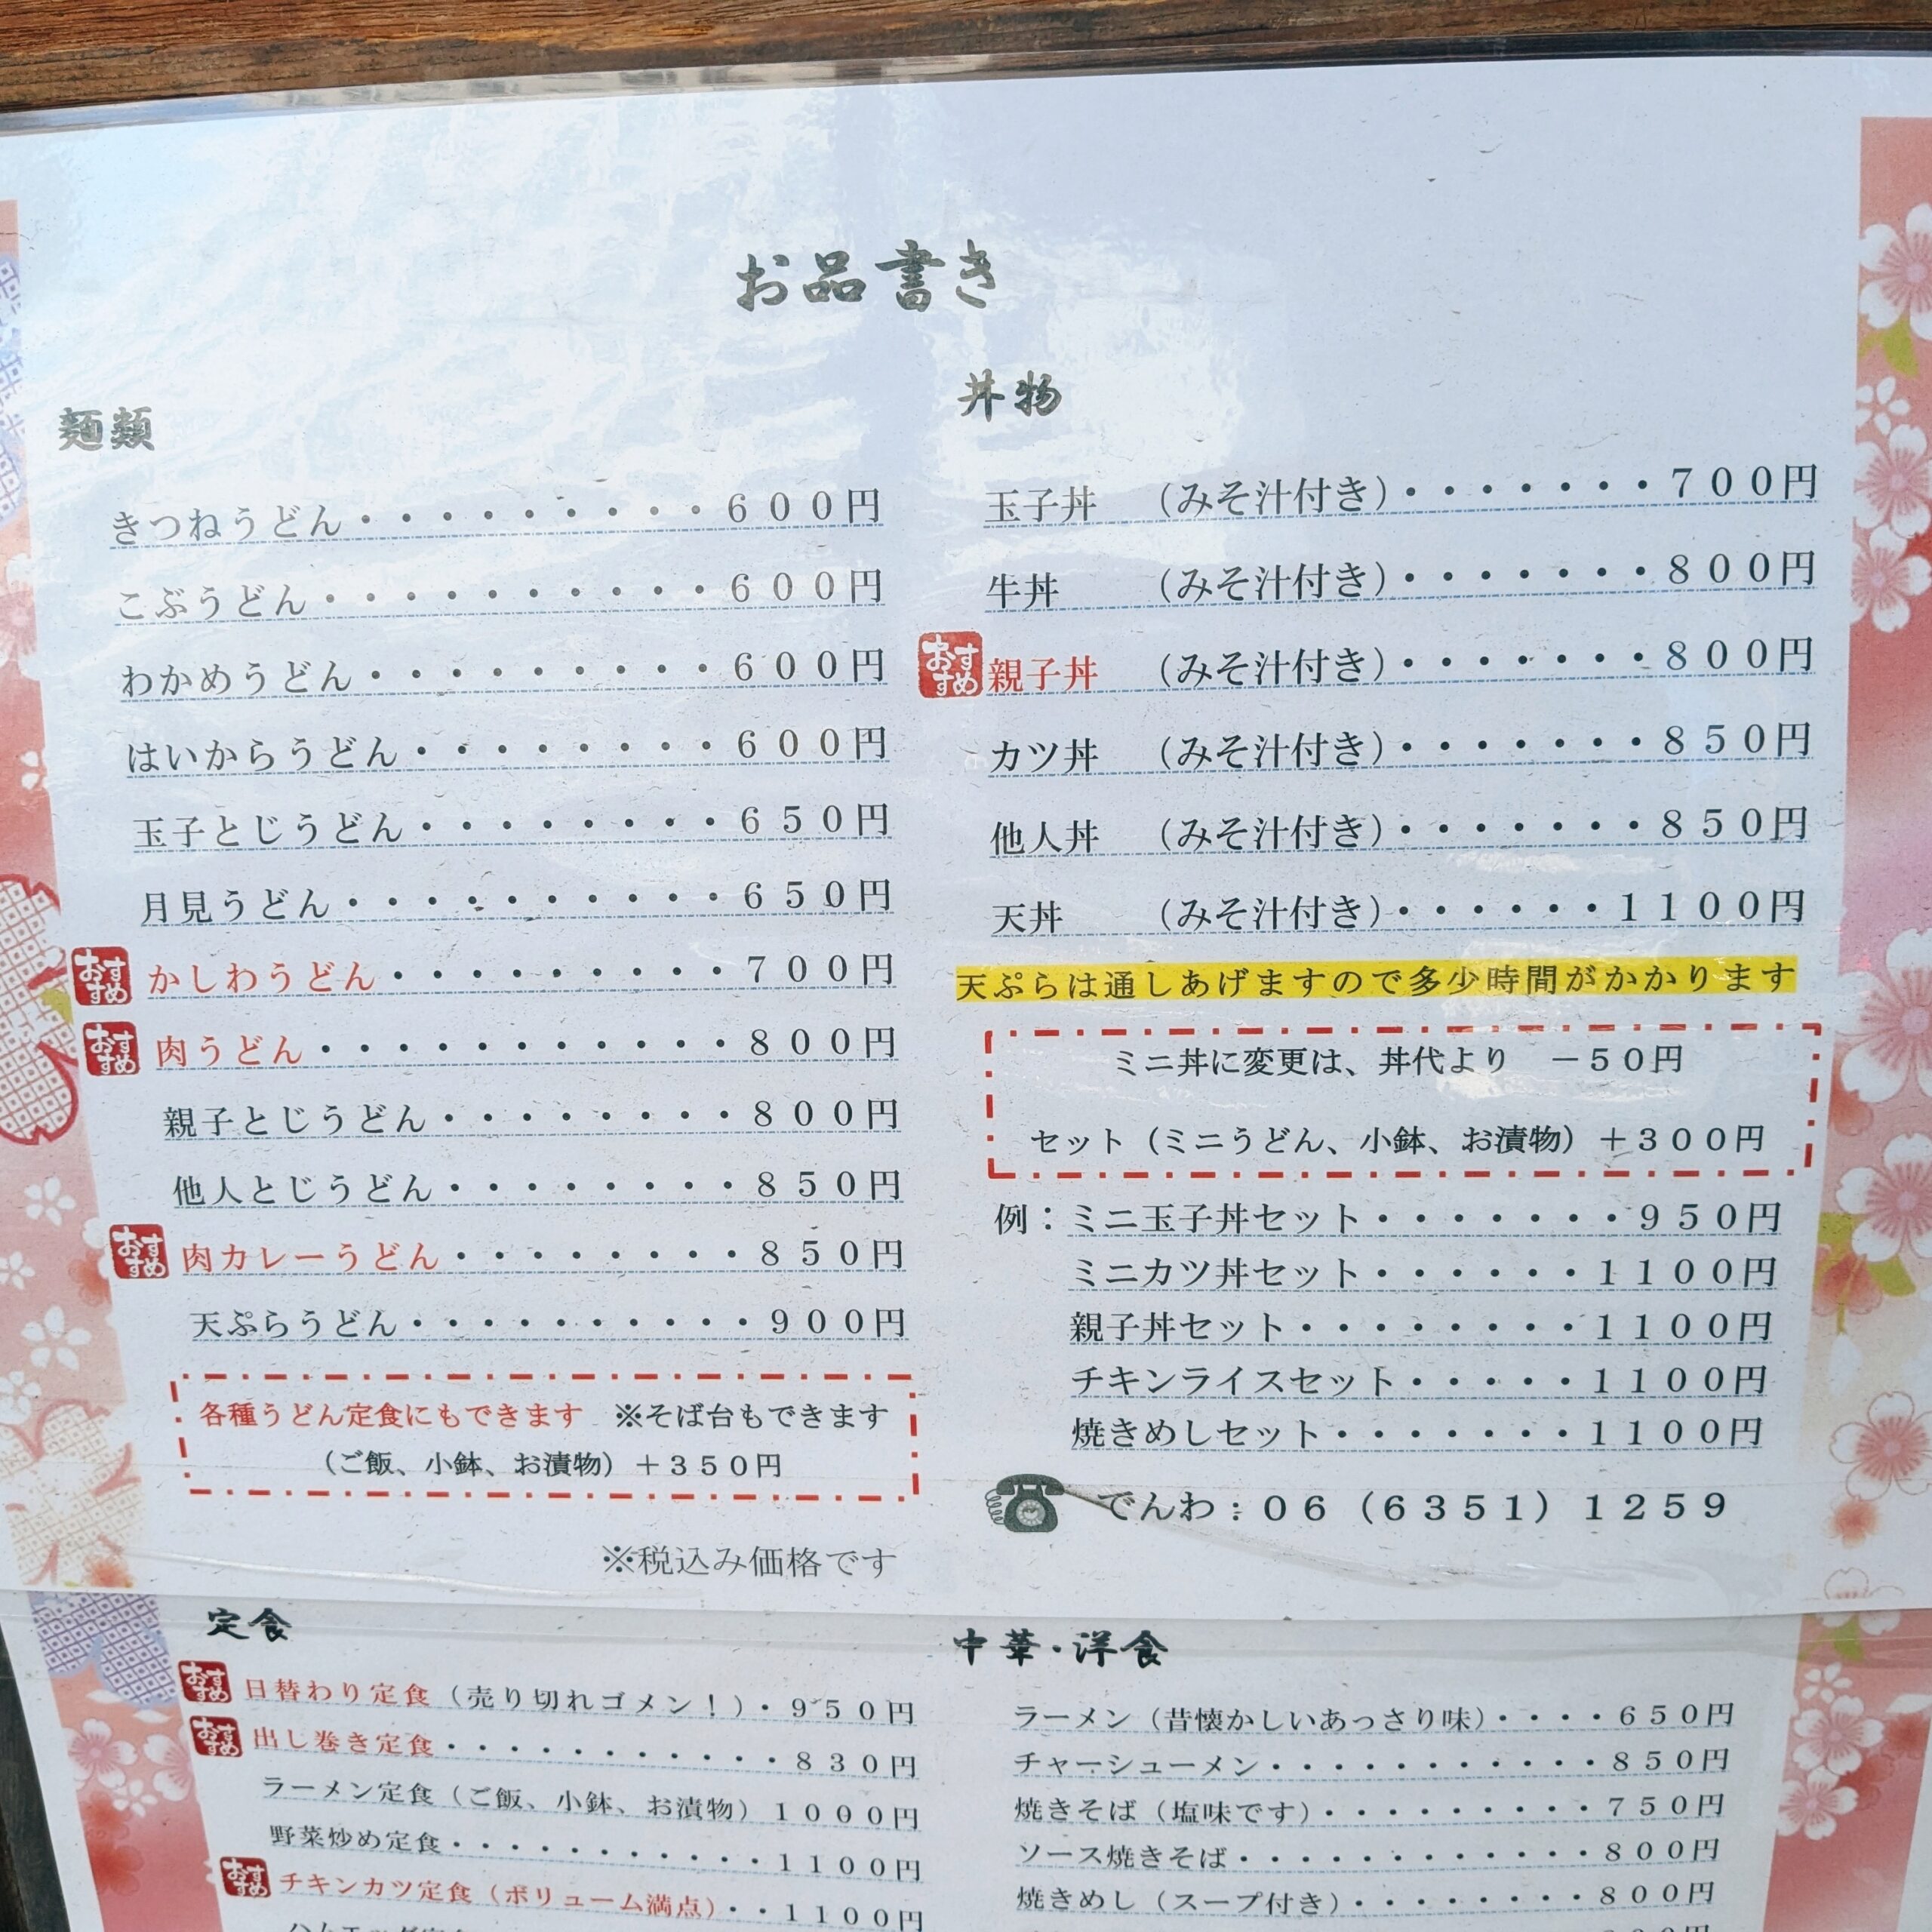 お品書き
麺類
きつねうどん・・・・・・・・・・600円
こぶうどん・・・・・・・・・・・600円
わかめうどん・・・・・・・・・・600円
はいからうどん・・・・・・・・・600円
玉子とじうどん・・・・・・・・・650円
月見うどん・・・・・・・・・・・650円
おすすめ かしわうどん・・・・・・・・・・700円
おすすめ 肉うどん・・・・・・・・・・・・800円
親子とじうどん・・・・・・・・・800円
他人とじうどん・・・・・・・・・850円
おすすめ 肉カレーうどん・・・・・・・・・850円
天ぷらうどん・・・・・・・・・・900円
各種うどん定食にもできます ※そば台もできます
（ご飯、小鉢、お漬物）＋350円
※税込み価格です
丼物
玉子丼 （みそ汁付き）・・・・・・・700円
牛丼 （みそ汁付き）・・・・・・・800円
おすすめ 親子丼 （みそ汁付き）・・・・・・・800円
カツ丼 （みそ汁付き）・・・・・・・850円
他人丼 （みそ汁付き）・・・・・・・850円
天丼 （みそ汁付き）・・・・・・1100円
天ぷらは通しあげますので多少時間がかかります
ミニ丼に変更は、丼代より －50円
セット（ミニうどん、小鉢、お漬物）＋300円
例：ミニ玉子丼セット・・・・・・・950円
ミニカツ丼セット・・・・・・1100円
親子丼セット・・・・・・・・1100円
チキンライスセット・・・・・1100円
焼きめしセット・・・・・・・1100円
でんわ：06（6351）1259
定食
おすすめ 日替わり定食（売り切れゴメン！）・950円
おすすめ 出し巻き定食・・・・・・・・・・・830円
ラーメン定食（ご飯、小鉢、お漬物）1000円
野菜炒め定食・・・・・・・・・・・1100円
おすすめ チキンカツ定食（ボリューム満点）・・1100円
中華・洋食
ラーメン（昔懐かしいあっさり味）・・・・650円
チャーシューメン・・・・・・・・・・・850円
焼きそば（塩味です）・・・・・・・・・750円
ソース焼きそば・・・・・・・・・・・・800円
焼きめし（スープ付き）・・・・・・・・800円